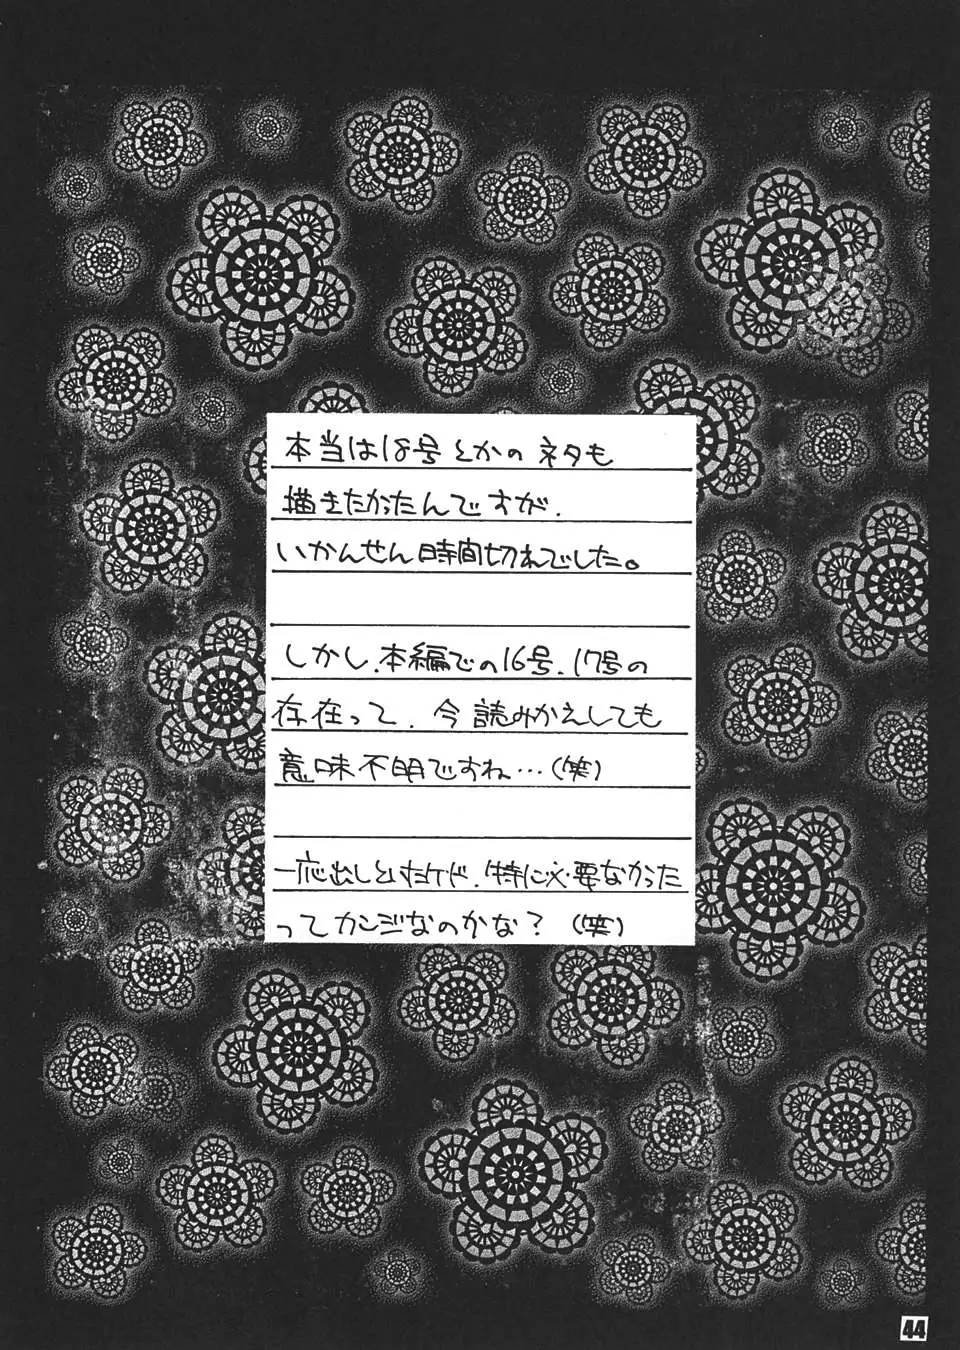 本当は18号とかのネタも
描きたかったんですが、
いかんせん時間切れでした。
しかし、本編での16号、17号の
存在って、今読みかえしても
意味不明ですね…(笑)
一応出しといたけど、特に必要なかった
ってカンジなのかな?(笑)
44